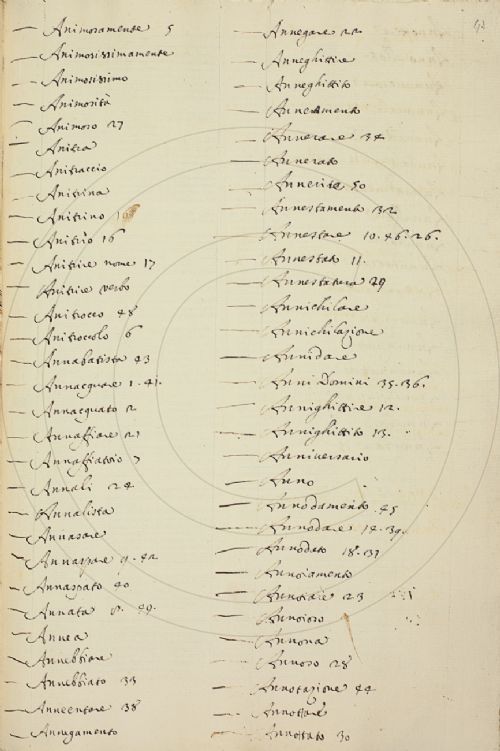 92
Animosamente 5
Animosissimamente
Animosissimo
Animosità
Animoso 27
Anitra
Anitraccio
Anitrina
Anitrino
Anitrio 16
Anitrire nome 17
Anitrire verbo
Anitrocco 48
Anitroccolo 6
Annabatista 43
Annacquare 1. 41.
Annacquato 2
Annaffiare 21
Annaffiatoio 7
Annali 24
Annalista
Annasare
Annaspare 9. 42
Annaspato 40
Annata 8. 49.
Annea
Annebbiare
Annebbiato 33
Anneentare 38
Annegamento
Annegare 22
Anneghittire
Anneghittito
Annestamento
Annerare 34
Annerato
Annerire 50
Annestamento 32
Annestare 10. 46. 26.
Annestato 11.
Annestatura 29
Annichilare
Annichilazione
Annidare
Anni Domini 35. 36.
Annighittire 12.
Annighittito 13.
Anniversario
Anno
Annodamento 45
Annodare 14. 39.
Annodato 18. 37
Annoiamento
Annoiare 23
Annoioso
Annona
Annoso 28
Annotazione 44
Annottare
Annottato 30